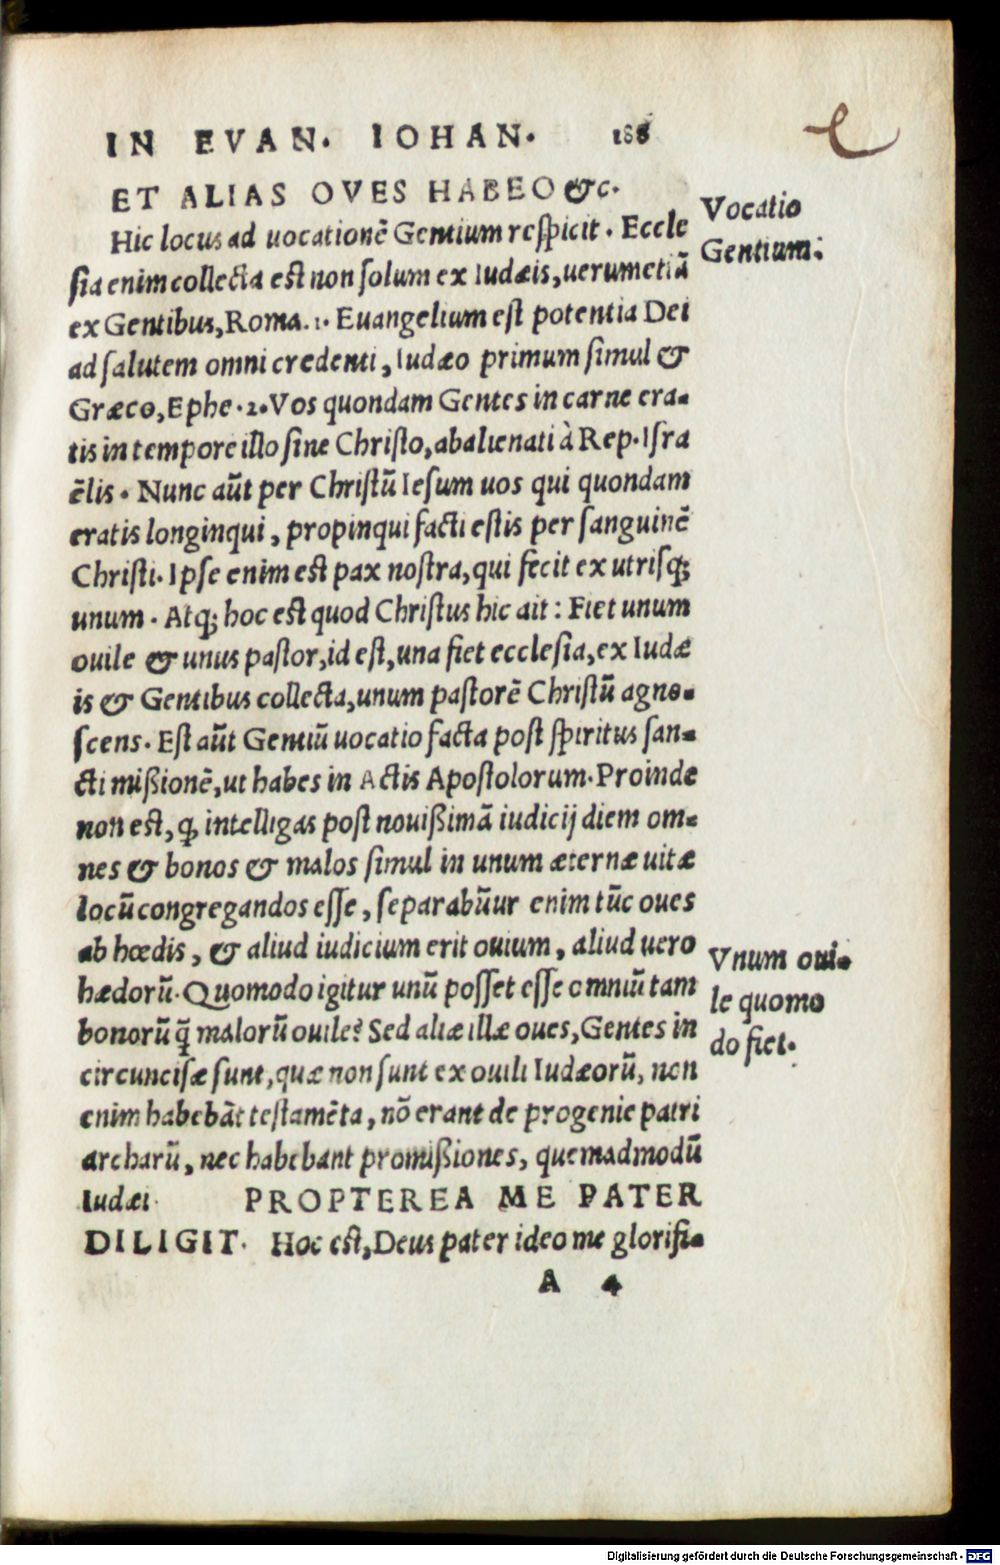 IN EVAN. IOHAN. 188
ET ALIAS OVES HABEO &c.
Hic locus ad uocationē Gentium respicit. Eccle
sia enim collecta est non solum ex Iudæis, uerumetiā
ex Gentibus, Roma. 1. Euangelium est potentia Dei
ad salutem omni credenti, Iudæo primum simul &
Græco, Ephe. 2. Vos quondam Gentes in carne era-
tis in tempore illo sine Christo, abalienati à Rep. Isra
ēlis. Nunc aūt per Christū Iesum uos qui quondam
eratis longinqui, propinqui facti estis per sanguinē
Christi. Ipse enim est pax nostra, qui fecit ex utrisq;
unum. Atq; hoc est quod Christus hic ait: Fiet unum
ouile & unus pastor, id est, una fiet ecclesia, ex Iudæ
is & Gentibus collecta, unum pastorē Christū agno-
scens. Est aūt Gentiū uocatio facta post spiritus san-
cti mißionē, ut habes in Actis Apostolorum. Proinde
non est, q, intelligas post nouißimā iudicij diem om-
nes & bonos & malos simul in unum æternæ uitæ
locū congregandos esse, separabūur enim tūc oues
ab hœdis, & aliud iudicium erit ouium, aliud uero
hædorū. Quomodo igitur unū posset esse omniū tam
bonorū q̄ malorū ouile? Sed aliæ illæ oues, Gentes in
circuncisæ sunt, quæ non sunt ex ouili Iudæorū, non
enim habebāt testamēta, nō erant de progenie patri
archarū, nec habebant promißiones, quemadmodū
Iudæi. PROPTEREA ME PATER
DILIGIT. Hoc est, Deus pater ideo me glorifi-
A 4
Vocatio
Gentium.
Vnum oui-
le quomo
do fiet.
Digitalisierung gefördert durch die Deutsche Forschungsgemeinschaft - DFG